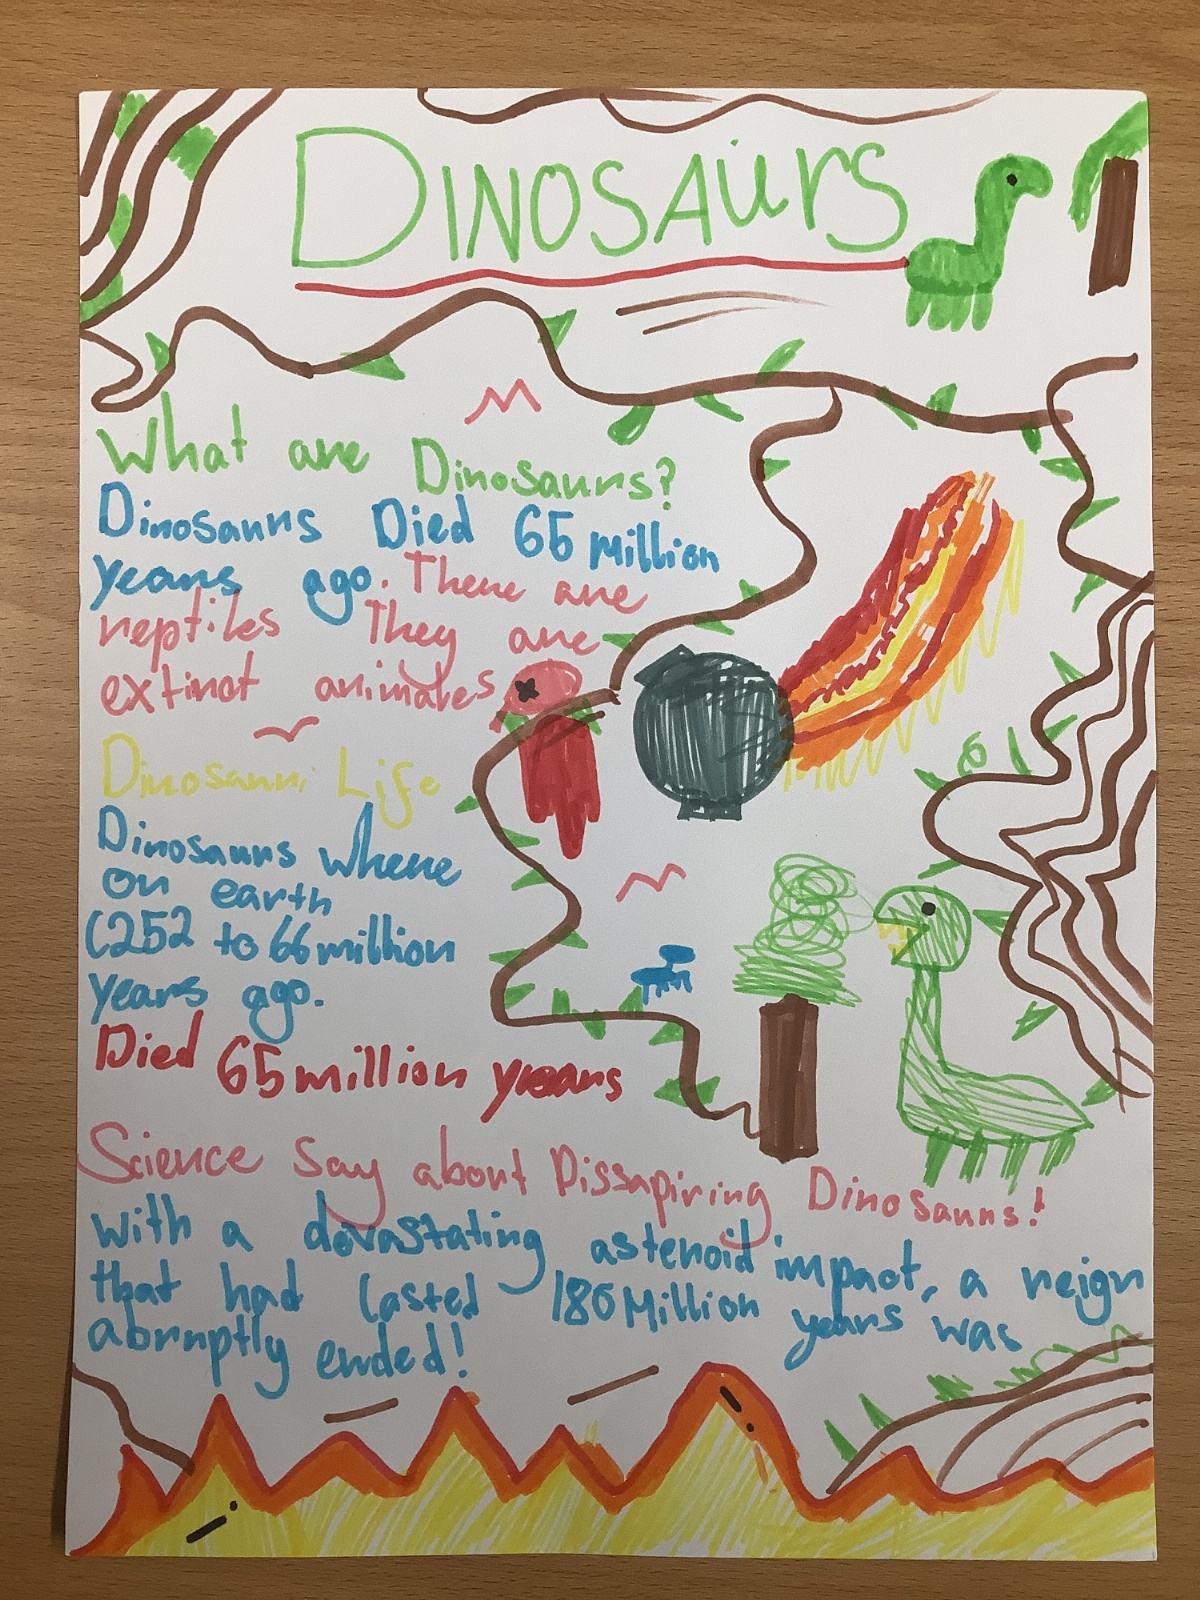 DINOSAurS
What are Dinosaurs?
Dinosaurs Died 65 million
years ago. There are
reptiles They are
extinct animales
Dinosaur Life
Dinosaurs where
on earth
(252 to 66 million
years ago.
Died 65 million years
Science say about Dissapiring Dinosaurs!
With a devastating asteroid impact, a reign
that had lasted 180 Million years was
abruptly ended!